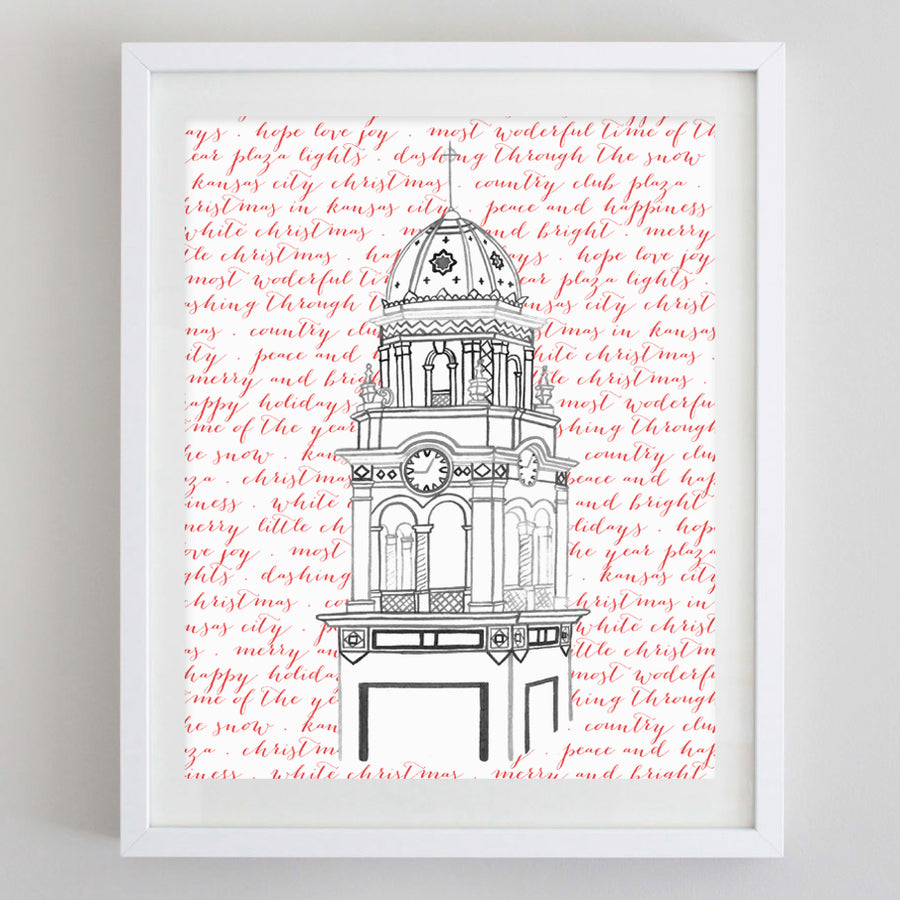 ays . hope love joy . most woderful time of th
ear plaza lights . dashing through the snow
kansas city christmas . country club plaza .
hristmas in kansas city . peace and happiness
white christmas . m nd bright . merry
tle christmas . ha ays . hope love joy
most woderful ti ear plaza lights .
ashing through t nsas city christ
mas . country clu tmas in kansas
ity . peace and h hite christmas .
merry and brigh tle christmas .
appy holidays most woderfu
me of the year shing through
he snow . kansas country club
za . christmas peace and hap
iness . white and bright
merry little ch olidays . hope
ove joy . most he year plaza
ghts . dashing kansas city
christmas . co hristmas in
nsas city . p white christma
as . merry an ittle christm
happy holida most woderfu
me of the ye hing through
he snow . kan country club
za . christm . peace and hap
iness . white christmas . merry and bright